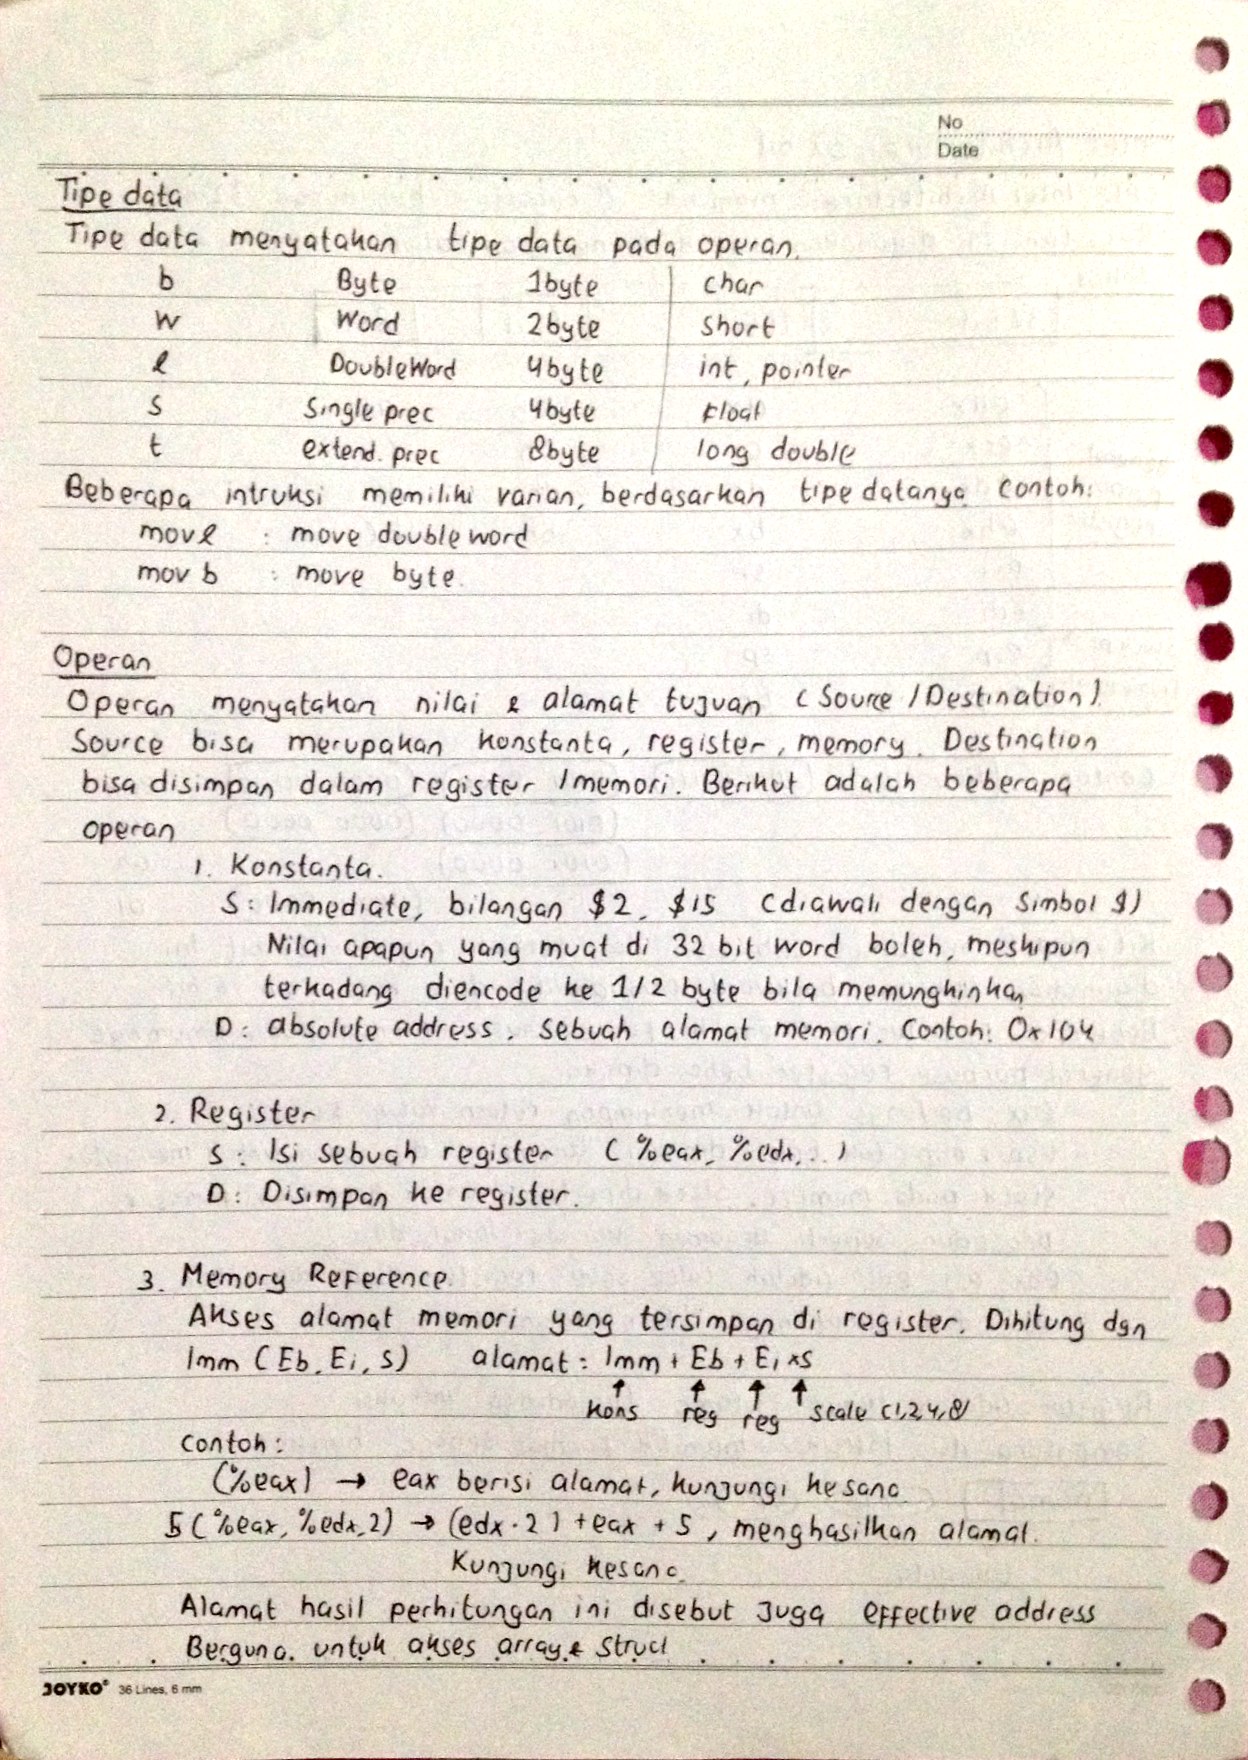 No
Date
Tipe data
Tipe data menyatakan tipe data pada operan.
b Byte 1byte char
w Word 2byte short
l DoubleWord 4byte int, pointer
s Single prec 4byte float
t extend. prec 8byte long double
Beberapa intruksi memiliki varian, berdasarkan tipe datanya contoh:
movl : move double word
mov b : move byte.
Operan
Operan menyatakan nilai & alamat tujuan (Source / Destination)
Source bisa merupakan konstanta, register, memory. Destination
bisa disimpan dalam register /memori. Berikut adalah beberapa
operan
1. Konstanta.
S: Immediate, bilangan $2, $15 (diawali dengan simbol $)
Nilai apapun yang muat di 32 bit word boleh, meskipun
terkadang diencode ke 1/2 byte bila memungkinkan
D: absolute address. sebuah alamat memori. Contoh: 0x104
2. Register
S: Isi sebuah register (%eax, %edx, ..)
D: Disimpan ke register.
3. Memory Reference.
Akses alamat memori yang tersimpan di register. Dihitung dgn
Imm (Eb, Ei, S) alamat: Imm + Eb + Ei xS
↑ ↑ ↑ ↑
kons reg reg scale (1,2,4,8)
contoh:
(%eax) → eax berisi alamat, kunjungi kesana
5(%eax, %edx,2) → (edx·2) + eax + 5, menghasilkan alamat.
Kunjungi kesana.
Alamat hasil perhitungan ini disebut juga effective address
Berguna untuk akses array & struct
JOYKO® 36 Lines, 6 mm